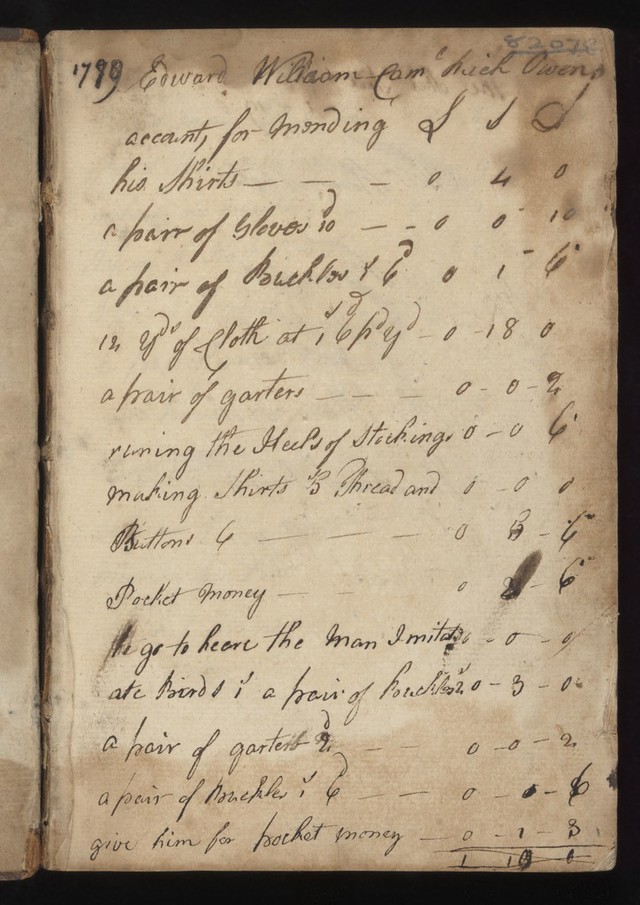 82078
1799 Edward William Cam
account, for mending £ s d
his Shirts — — - 0 4 0
a pair of Gloves 10d — - 0 0 10
a pair of Buckles 1s 6d 0 1 6
12 Yds of Cloth at 1s 6d pr yd - 0 - 18 0
a pair of garters — — — 0 - 0 - 2
runing the Heels of Stockings 0 - 0 6
making Shirts 3s Thread and 0 - 0 0
Buttons 6 — — — 0 3 - 6
Pocket money — - 0 2 - 6
to heere the man Imitate - 0 - 0
ate Birds 1s a pair of Buckles 2s 0 - 3 - 0
a pair of garters 2d — — 0 - 0 - 2
a pair of Buckles 1s 6d — — 0 - 6
give him for pocket money — 0 - 1 - 3
1 0